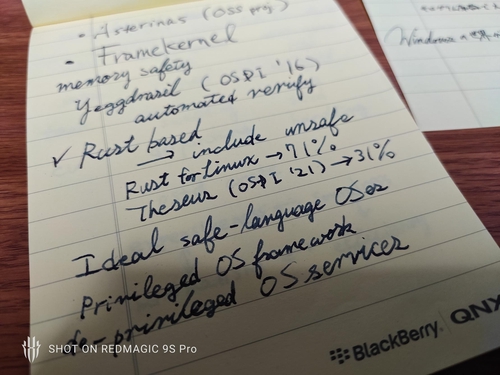 • Asterinas (OSS proj)
• Framekernel
memory safety
Yeggdrasil (OSDI '16)
automated verify
✓ Rust based
→ include unsafe
Rust for Linux → 71%
Theseus (OSDI '21) → 31%
Ideal safe-language OSes
Privileged OS framework
de-privileged OS services
BlackBerry. QNX
SHOT ON REDMAGIC 9S Pro
Windows